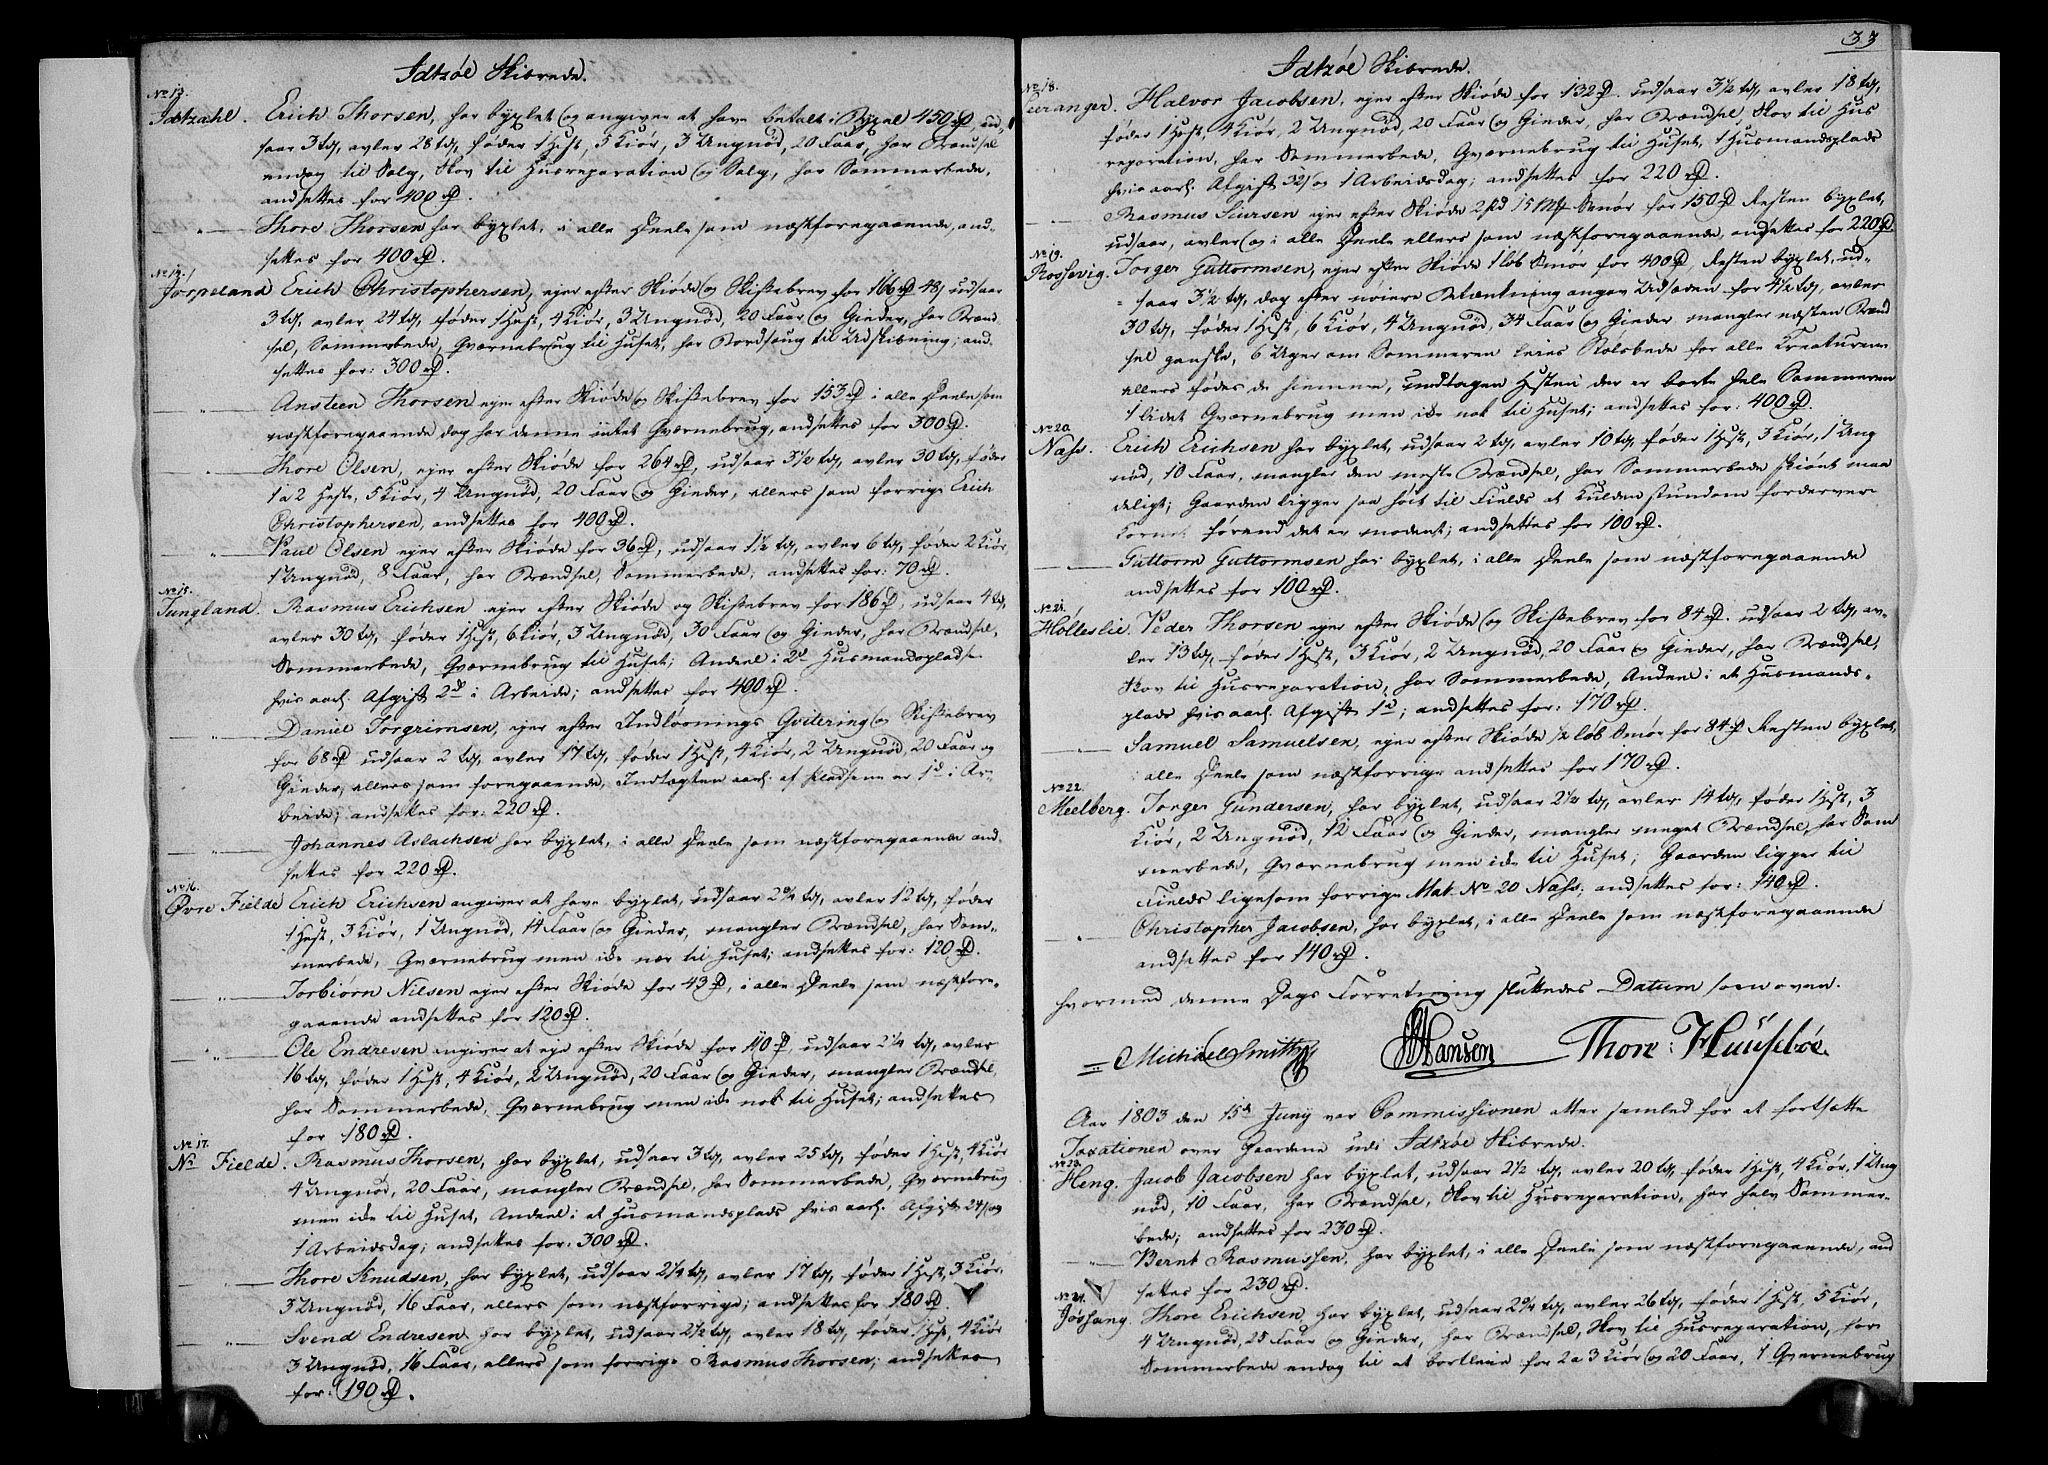 Idtzöe Skibrede.
No 13.
Idtzahl. Erich Thorsen, har byxlet og angiver at have betalt i Byxel 450 rd, ud,
saar 3 tdr, avler 28 tdr, föder 1 Hest, 5 Kiör, 3 Ungnöd, 20 Faar, har Brændsel
endog til Salg, Skov til Husreparation og Salg, har Sommerbede,
andsettes for 400 rd.
" Thore Thorsen har byxlet, i alle Deele som næstforegaaende, and-
settes for 400 rd.
No 14.
Jörpeland Erich Christophersen, ejer efter Skiöde og Skiftebrev for 166 rd 48 s, udsaar
3 tdr, avler 24 tdr, föder 1 Hest, 4 Kiör, 3 Ungnöd, 20 Faar og Gieder, har Brænd
sel, Sommerbede, Qværnebrug til Huset, har Bordsaug til Udskibning; and
settes for: 300 rd.
" Ansteen Thorsen ejer efter Skiöde og Skiftebrev for 153 rd i alle Deele som
næstforegaaende dog har denne intet Qværnebrug, andsettes for 300 rd.
" Thore Olsen, ejer efter Skiöde for 264 rd, udsaar 3½ tdr, avler 30 tdr, föder
1 a 2 Heste, 5 Kiör, 4 Ungnöd, 20 Faar og Gieder, ellers som forrige Erich
Christophersen, andsettes for 400 rd.
" Paul Olsen ejer efter Skiöde for 36 rd, udsaar 1½ tdr, avler 6 tdr, föder 2 Kiör
1 Ungnöd, 8 Faar, har Brændsel, Sommerbede; andsettes for: 70 rd.
No 15.
Tungland. Rasmus Erichsen ejer efter Skiöde og Skiftebrev for 186 rd, udsaar 4 tdr,
avler 30 tdr, föder 1 Hest, 6 Kiör, 3 Ungnöd, 30 Faar og Gieder, har Brændsel,
Sommerbede, Qværnebrug til Huset; Andeel i 2de Husmandspladse
hvis aarl. Afgift 2 rd i Arbeide; andsettes for 400 rd.
" Daniel Torgrimsen, ejer efter Indlösnings Qvitering og Skiftebrev
for 68 rd udsaar 2 tdr, avler 17 tdr, föder 1 Hest, 4 Kiör, 2 Ungnöd, 20 Faar og
Gieder, ellers som foregaaende, Indtægten aarl. af Pladsene er 1 rd i Ar-
beide; andsettes for: 220 rd.
" Johannes Aslachsen har byxlet, i alle Deele som næstforegaaende and-
settes for 220 rd.
No 16.
Øvre Fielde Erich Erichsen angiver at have byxlet, udsaar 2¼ tdr, avler 12 tdr, föder
1 Hest, 3 Kiör, 1 Ungnöd, 14 Faar og Gieder, mangler Brændsel, har Som-
merbede, Qværnebrug men ikke nær til Huset; andsettes for: 120 rd.
" Torbiörn Nilsen ejer efter Skiöde for 43 rd, i alle Deele som næstfore-
gaaende andsettes for 120 rd.
" Ole Endresen angiver at eje efter Skiöde for 110 rd, udsaar 2¼ tdr, avler
16 tdr, föder 1 Hest, 4 Kiör, 2 Ungnöd, 20 Faar og Gieder, mangler Brændsel,
har Sommerbede, Qværnebrug men ikke nok til Huset; andsettes
for 180 rd.
No 17.
Nr Fielde. Rasmus Thorsen, har byxlet, udsaar 3 tdr, avler 25 tdr, föder 1 Hest, 4 Kiör
4 Ungnöd, 20 Faar, mangler Brændsel, har Sommerbede, Qværnebrug
men ikke til Huset, Andeel i et Husmandsplads hvis aarl. Afgift 24 s og
1 Arbeidsdag; andsettes for: 300 rd.
" Thore Knudsen, har byxlet, udsaar 2¼ tdr, avler 17 tdr, föder 1 Hest, 3 Kiör,
3 Ungnöd, 16 Faar, ellers som næstforrige; andsettes for 180 rd.
" Svend Endresen har byxlet, udsaar 2½ tdr, avler 18 tdr, föder 1 Hest, 4 Kiör
3 Ungnöd, 16 Faar, ellers som forrige Rasmus Thorsen; andsettes
for: 190 rd.
33
Idtzöe Skibrede.
No 18.
Halvor Jacobsen, ejer efter Skiöde for 132 rd. udsaar 3½ tdr, avler 18 tdr,
föder 1 Hest, 4 Kiör, 2 Ungnöd, 20 Faar og Gieder, har Brændsel, Skov til Hus
reparation, har Sommerbede, Qværnebrug til Huset, 1 Husmandsplads
hvis aarl. Afgift 32 s og 1 Arbeidsdag; andsettes for 220 rd.
" Rasmus Siursen ejer efter Skiöde 2 pd 15 mrk Smör for 150 rd Resten byxlet,
udsaar, avler og i alle Deele ellers som næstforegaaende, andsettes for 220 rd.
No 19.
Rossevig. Torger Guttormsen, ejer efter Skiöde 1 löb Smör for 400 rd, Resten byxlet, ud-
saar 3½ tdr, dog efter nöiere Betænkning angav Udsæden for 4½ tdr, avler
30 tdr, föder 1 Hest, 6 Kiör, 4 Ungnöd, 34 Faar og Gieder mangler næsten Brænd
sel ganske, 6 Uger om Sommeren leies Stölsbede for alle Kreaturene
ellers födes de hiemme, undtagen Hesten der er borte hele Sommeren
1 lidet Qværnebrug men ikke nok til Huset; andsettes for: 400 rd.
No 20.
Næss. Erich Erichsen har byxlet, udsaar 2 tdr, avler 10 tdr, föder 1 Hest, 3 Kiör, 1 Ung
nöd, 10 Faar, mangler den meste Brændsel, har Sommerbede skiönt maa
deligt; Gaarden ligger saa höit til Fields at Kulden stundom forderver
Kornet förend det er modent; andsettes for 100 rd.
" Guttorm Guttormsen har byxlet, i alle Deele som næstforegaaende
andsettes for 100 rd.
No 21.
Hölleslie. Peder Thorsen ejer efter Skiöde og Skiftebrev for 84 rd. udsaar 2 tdr, av-
ler 13 tdr, föder 1 Hest, 3 Kiör, 2 Ungnöd, 20 Faar og Gieder, har Brændsel,
Skov til Husreparation, har Sommerbede, Andeel i et Husmands-
plads hvis aarl. Afgift 1 rd; andsettes for: 170 rd.
" Samuel Samuelsen, ejer efter Skiöde ½ löb Smör for 84 rd Resten byxlet,
i alle Deele som næstforrige andsettes for 170 rd.
No 22.
Meelberg. Torger Gundersen, har byxlet, udsaar 2½ tdr, avler 14 tdr, föder 1 Hest, 3
Kiör, 2 Ungnöd, 12 Faar og Gieder, mangler meget Brændsel, har Som
merbede, Qværnebrug men ikke til Huset; Gaarden ligger til
Fields ligesom forrige Mat. No 20 Næss; andsettes for: 140 rd.
" Christopher Jacobsen, har byxlet, i alle Deele som næstforegaaende
andsettes for 140 rd.
Hvormed denne Dags Forretning sluttedes Datum som oven.
Michael Smith Hansen Thore Huusebøe.
Aar 1803 den 15de Juny var Commissionen atter samled for at fortsætte
Taxationen over Gaardene udi Idtzöe Skibrede.
No 23.
Heng. Jacob Jacobsen har byxlet, udsaar 2½ tdr, avler 20 tdr, föder 1 Hest, 4 Kiör, 1 Ung
nöd, 10 Faar, har Brændsel, Skov til Husreparation, har selv Sommer-
bede; andsettes for 230 rd.
" Bernt Rasmussen, har byxlet, i alle Deele som næstforegaaende, and
settes for 230 rd.
No 24.
Jössang. Thore Erichsen har byxlet, udsaar 2¼ tdr, avler 26 tdr, föder 1 Hest, 5 Kiör,
4 Ungnöd, 25 Faar og Gieder, har Brændsel, Skov til Husreparation, har
Sommerbede endog til at bortleie for 2 a 3 Kiör og 20 Faar, 1 Qvernebrug